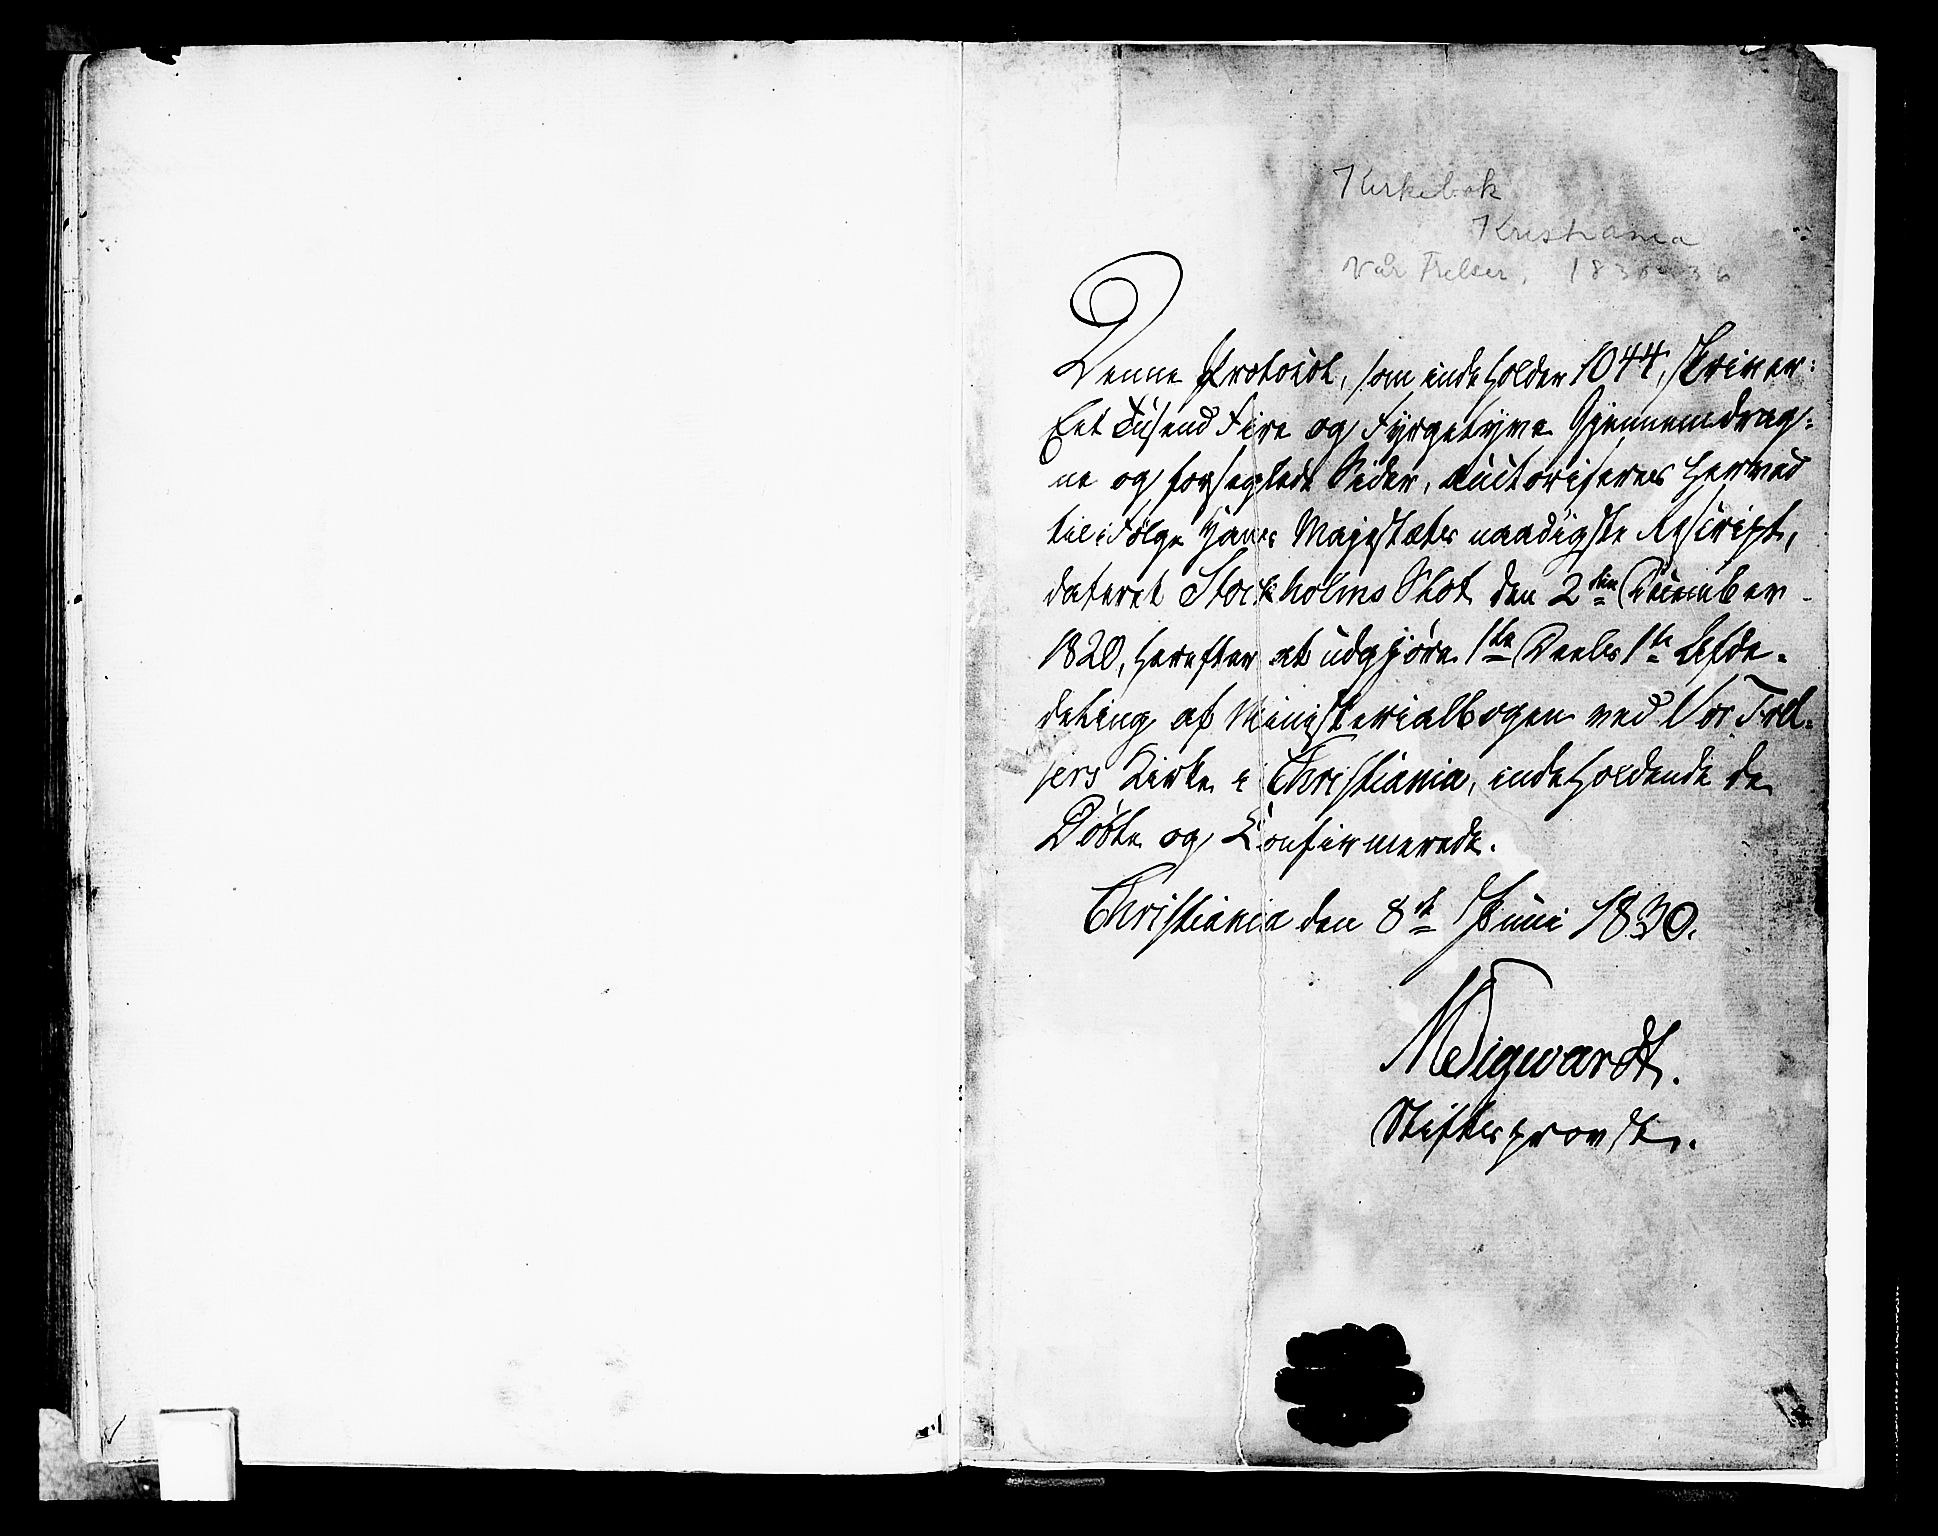 Kirkebok
Kristiania
Vår Frelser, 1830-36
Denne Protocol, som indeholder 1044, skriver:
Eet Tusend Fire og Fyrgetyve Gjennemdrag:
ne og forseglede Sider, auctoriseres herved
tilifølge Hans Majestæts naadigste Rescript,
dateret Stockholms Slot den 2den December
1820, herefter at udgjøre 1ste Deels 1ste Afde-
deling af Ministerialbogen ved Vor Frel-
sers Kirke i Christiania, indeholdende de
Døbte og Confirmerede.
Christiania den 8de Juni 1830.
MSigwardt.
Stiftsprovst.